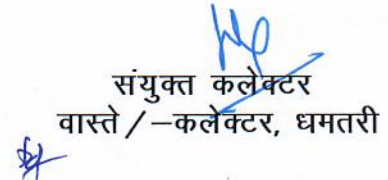 संयुक्त कलेक्टर
वास्ते / –कलेक्टर, धमतरी